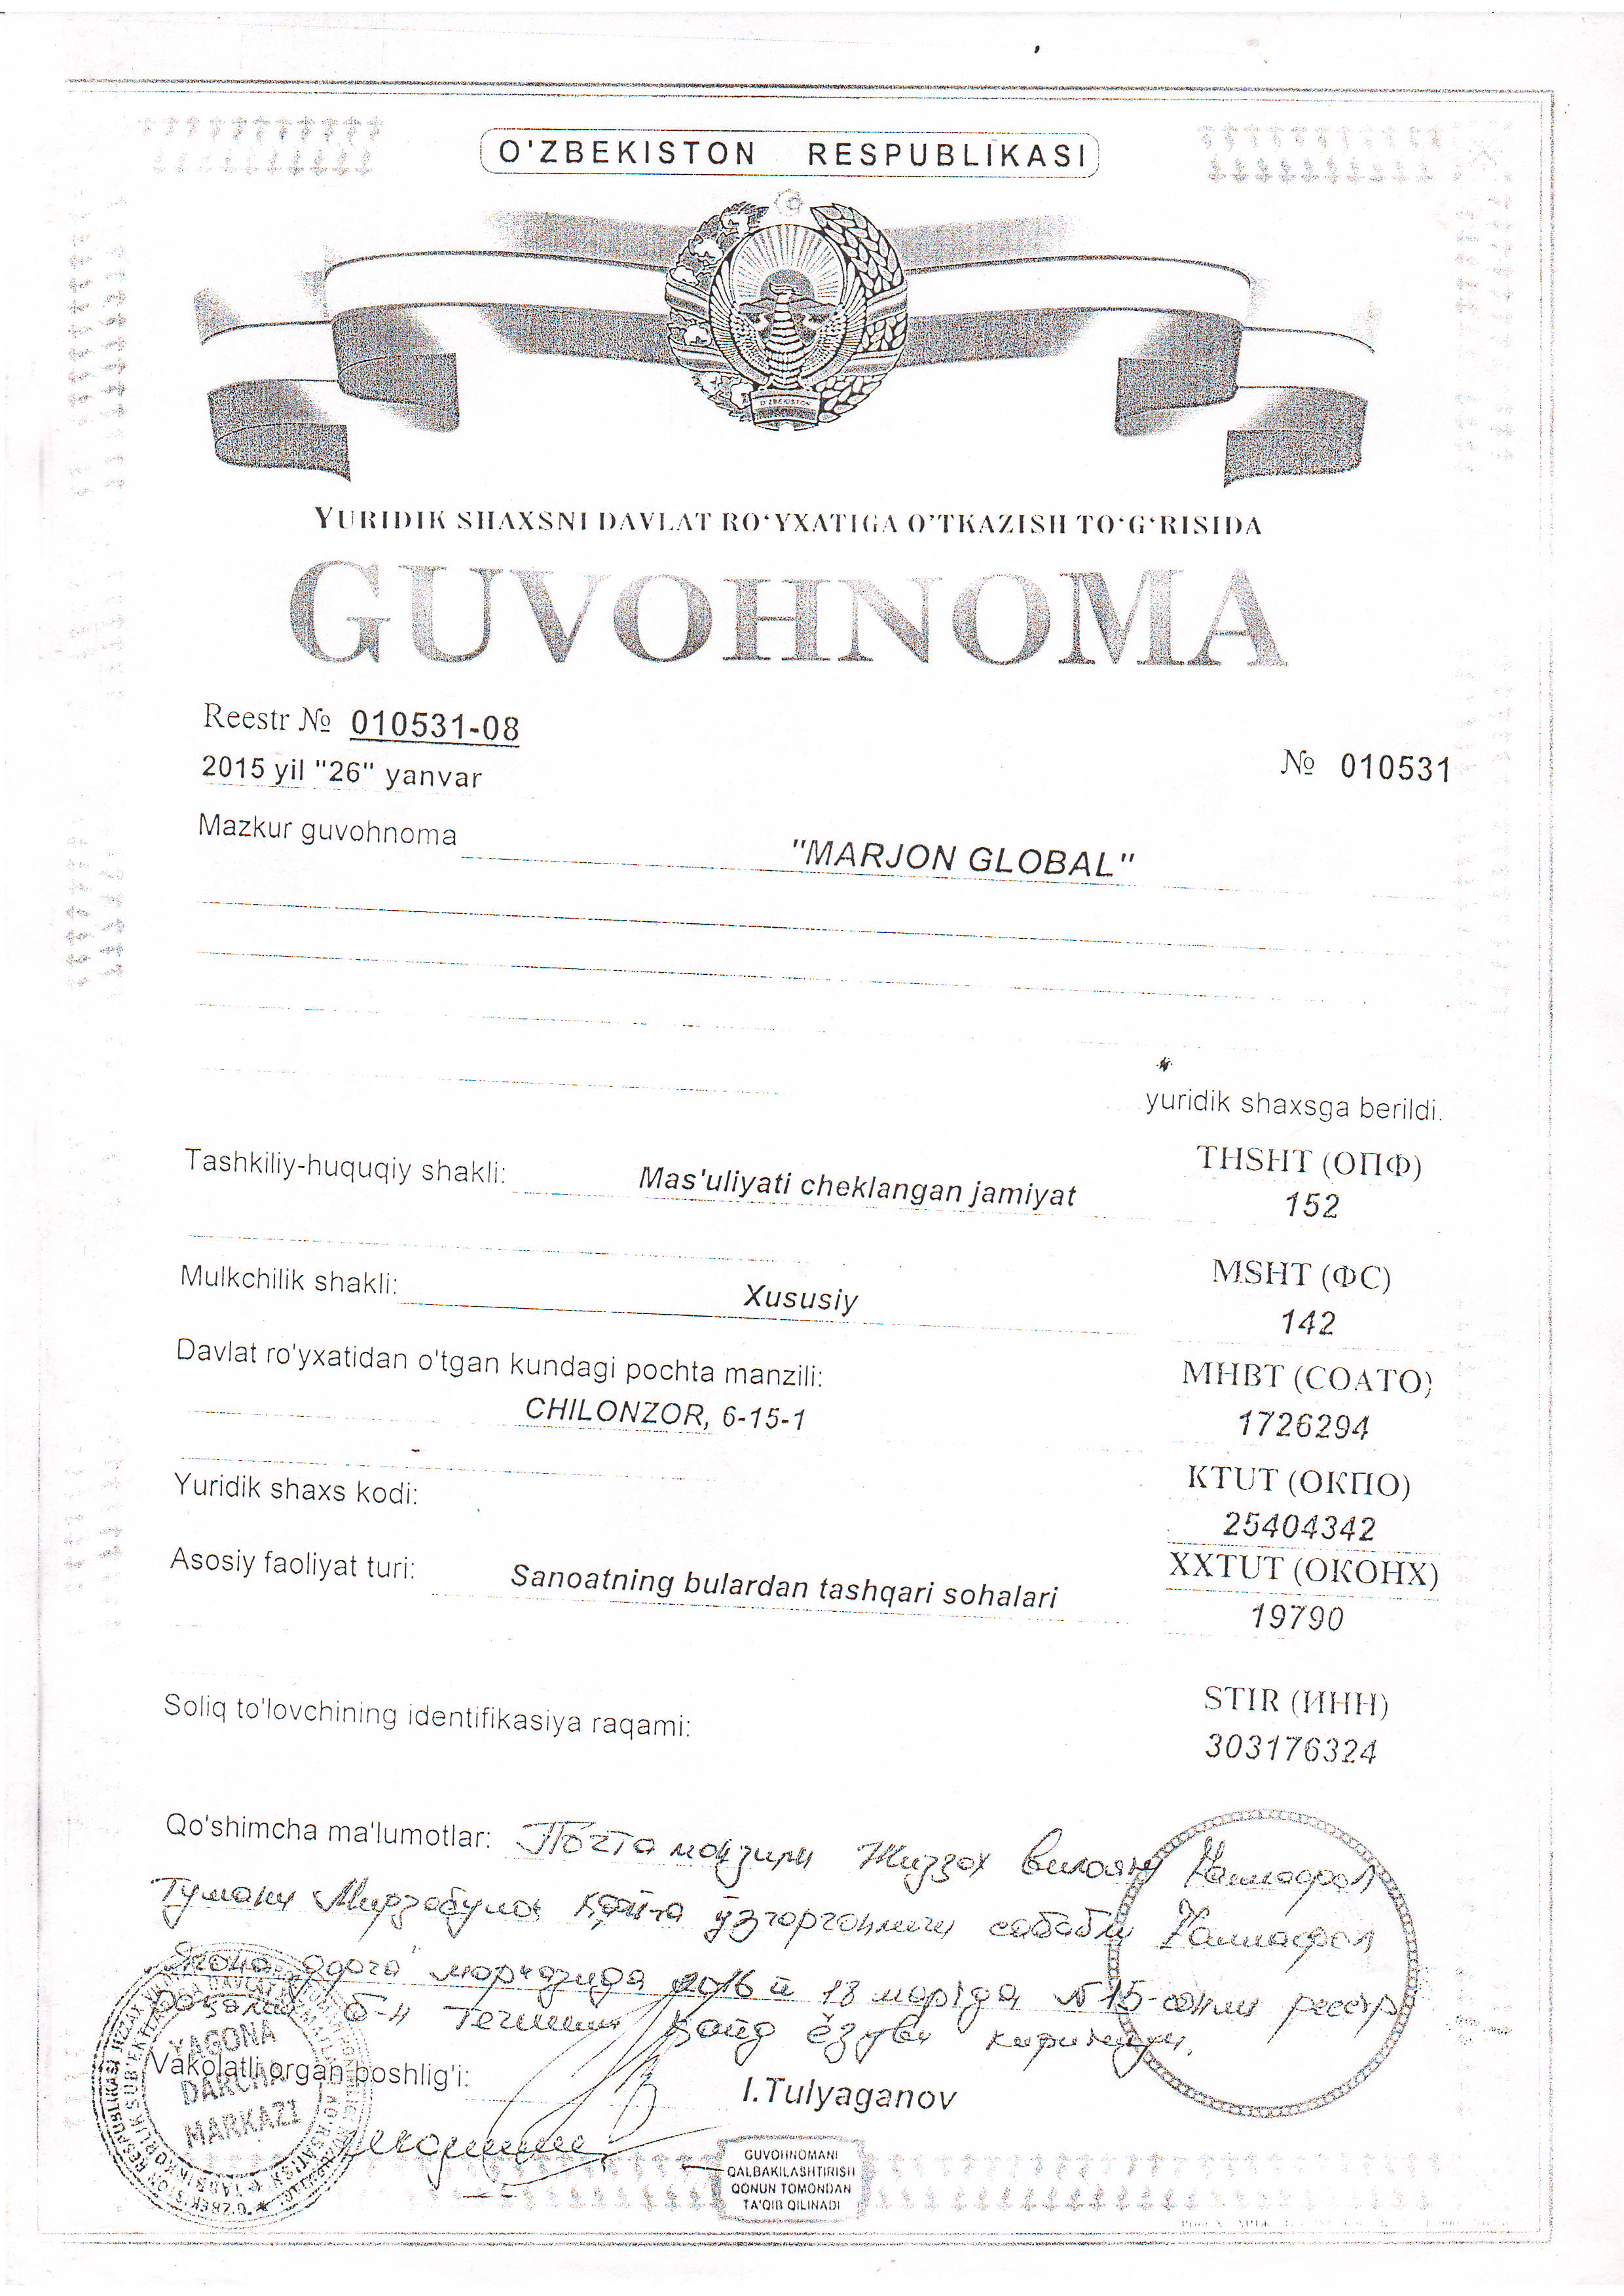 O'ZBEKISTON RESPUBLIKASI
O'ZBEKISTON
YURIDIK SHAXSNI DAVLAT RO‘YXATIGA O’TKAZISH TO‘G‘RISIDA
GUVOHNOMA
Reestr № 010531-08
2015 yil "26" yanvar
№ 010531
Mazkur guvohnoma "MARJON GLOBAL"
yuridik shaxsga berildi.
Tashkiliy-huquqiy shakli: Mas'uliyati cheklangan jamiyat
THSHT (ОПФ)
152
Mulkchilik shakli: Xususiy
MSHT (ФС)
142
Davlat ro'yxatidan o'tgan kundagi pochta manzili:
CHILONZOR, 6-15-1
MHBT (СОАТО)
1726294
Yuridik shaxs kodi:
KTUT (ОКПО)
25404342
Asosiy faoliyat turi: Sanoatning bulardan tashqari sohalari
XXTUT (ОКОНХ)
19790
Soliq to'lovchining identifikasiya raqami:
STIR (ИНН)
303176324
Qo'shimcha ma'lumotlar: Почта манзили Жиззох вилояти
Тумани Мирзабулоқ ўзгарганлиги сабабли
Ягона дарча марказида 2016 й 18 мартда №15-сонли реестр
рақами б-н тегишли қайд ёзуви киритилди.
YAGONA
DARCHA
MARKAZI
Vakolatli organ boshlig'i: I.Tulyaganov
GUVOHNOMANI
QALBAKILASHTIRISH
QONUN TOMONDAN
TA'QIB QILINADI